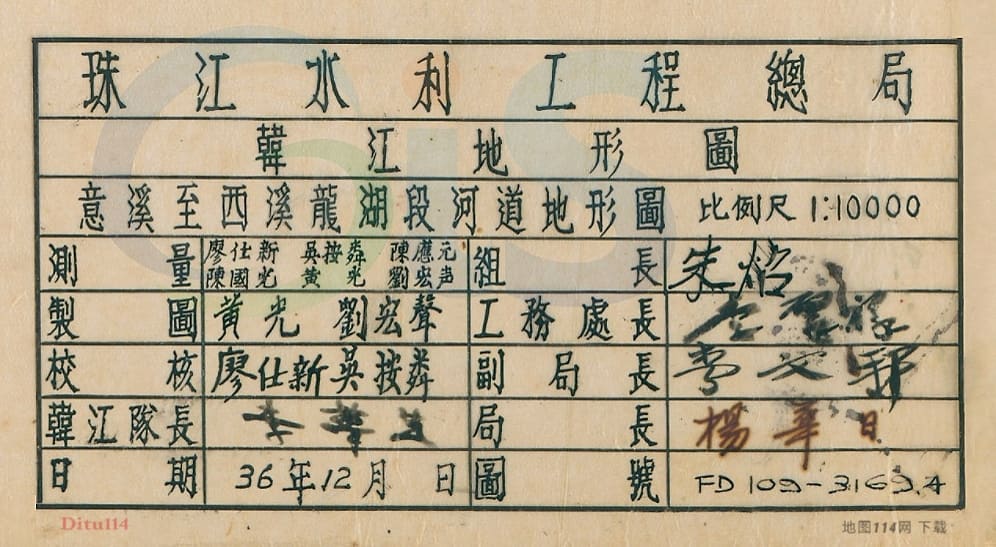 珠江水利工程總局
韓江地形圖
意溪至西溪龍湖段河道地形圖 比例尺 1:10000
測量 廖仕新 吳按粦 陳應元 組長 朱
陳國光 黃光 劉宏声
製圖 黃光 劉宏聲 工務處長
校核 廖仕新 吳按粦 副局長 李文邦
韓江隊長 李 局長 楊華日
日期 36年12月 日 圖號 FD 109-3169.4
Ditu114
地图114网 下载
GIS